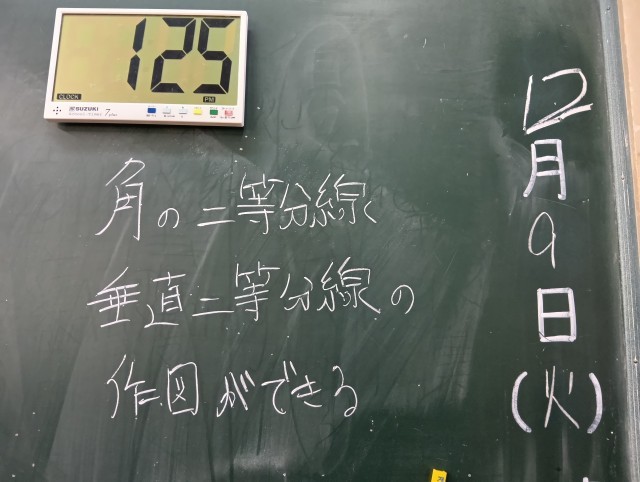 125
CLOCK
PM
SUZUKI
12月9日(火)
角の二等分線
垂直二等分線の
作図ができる